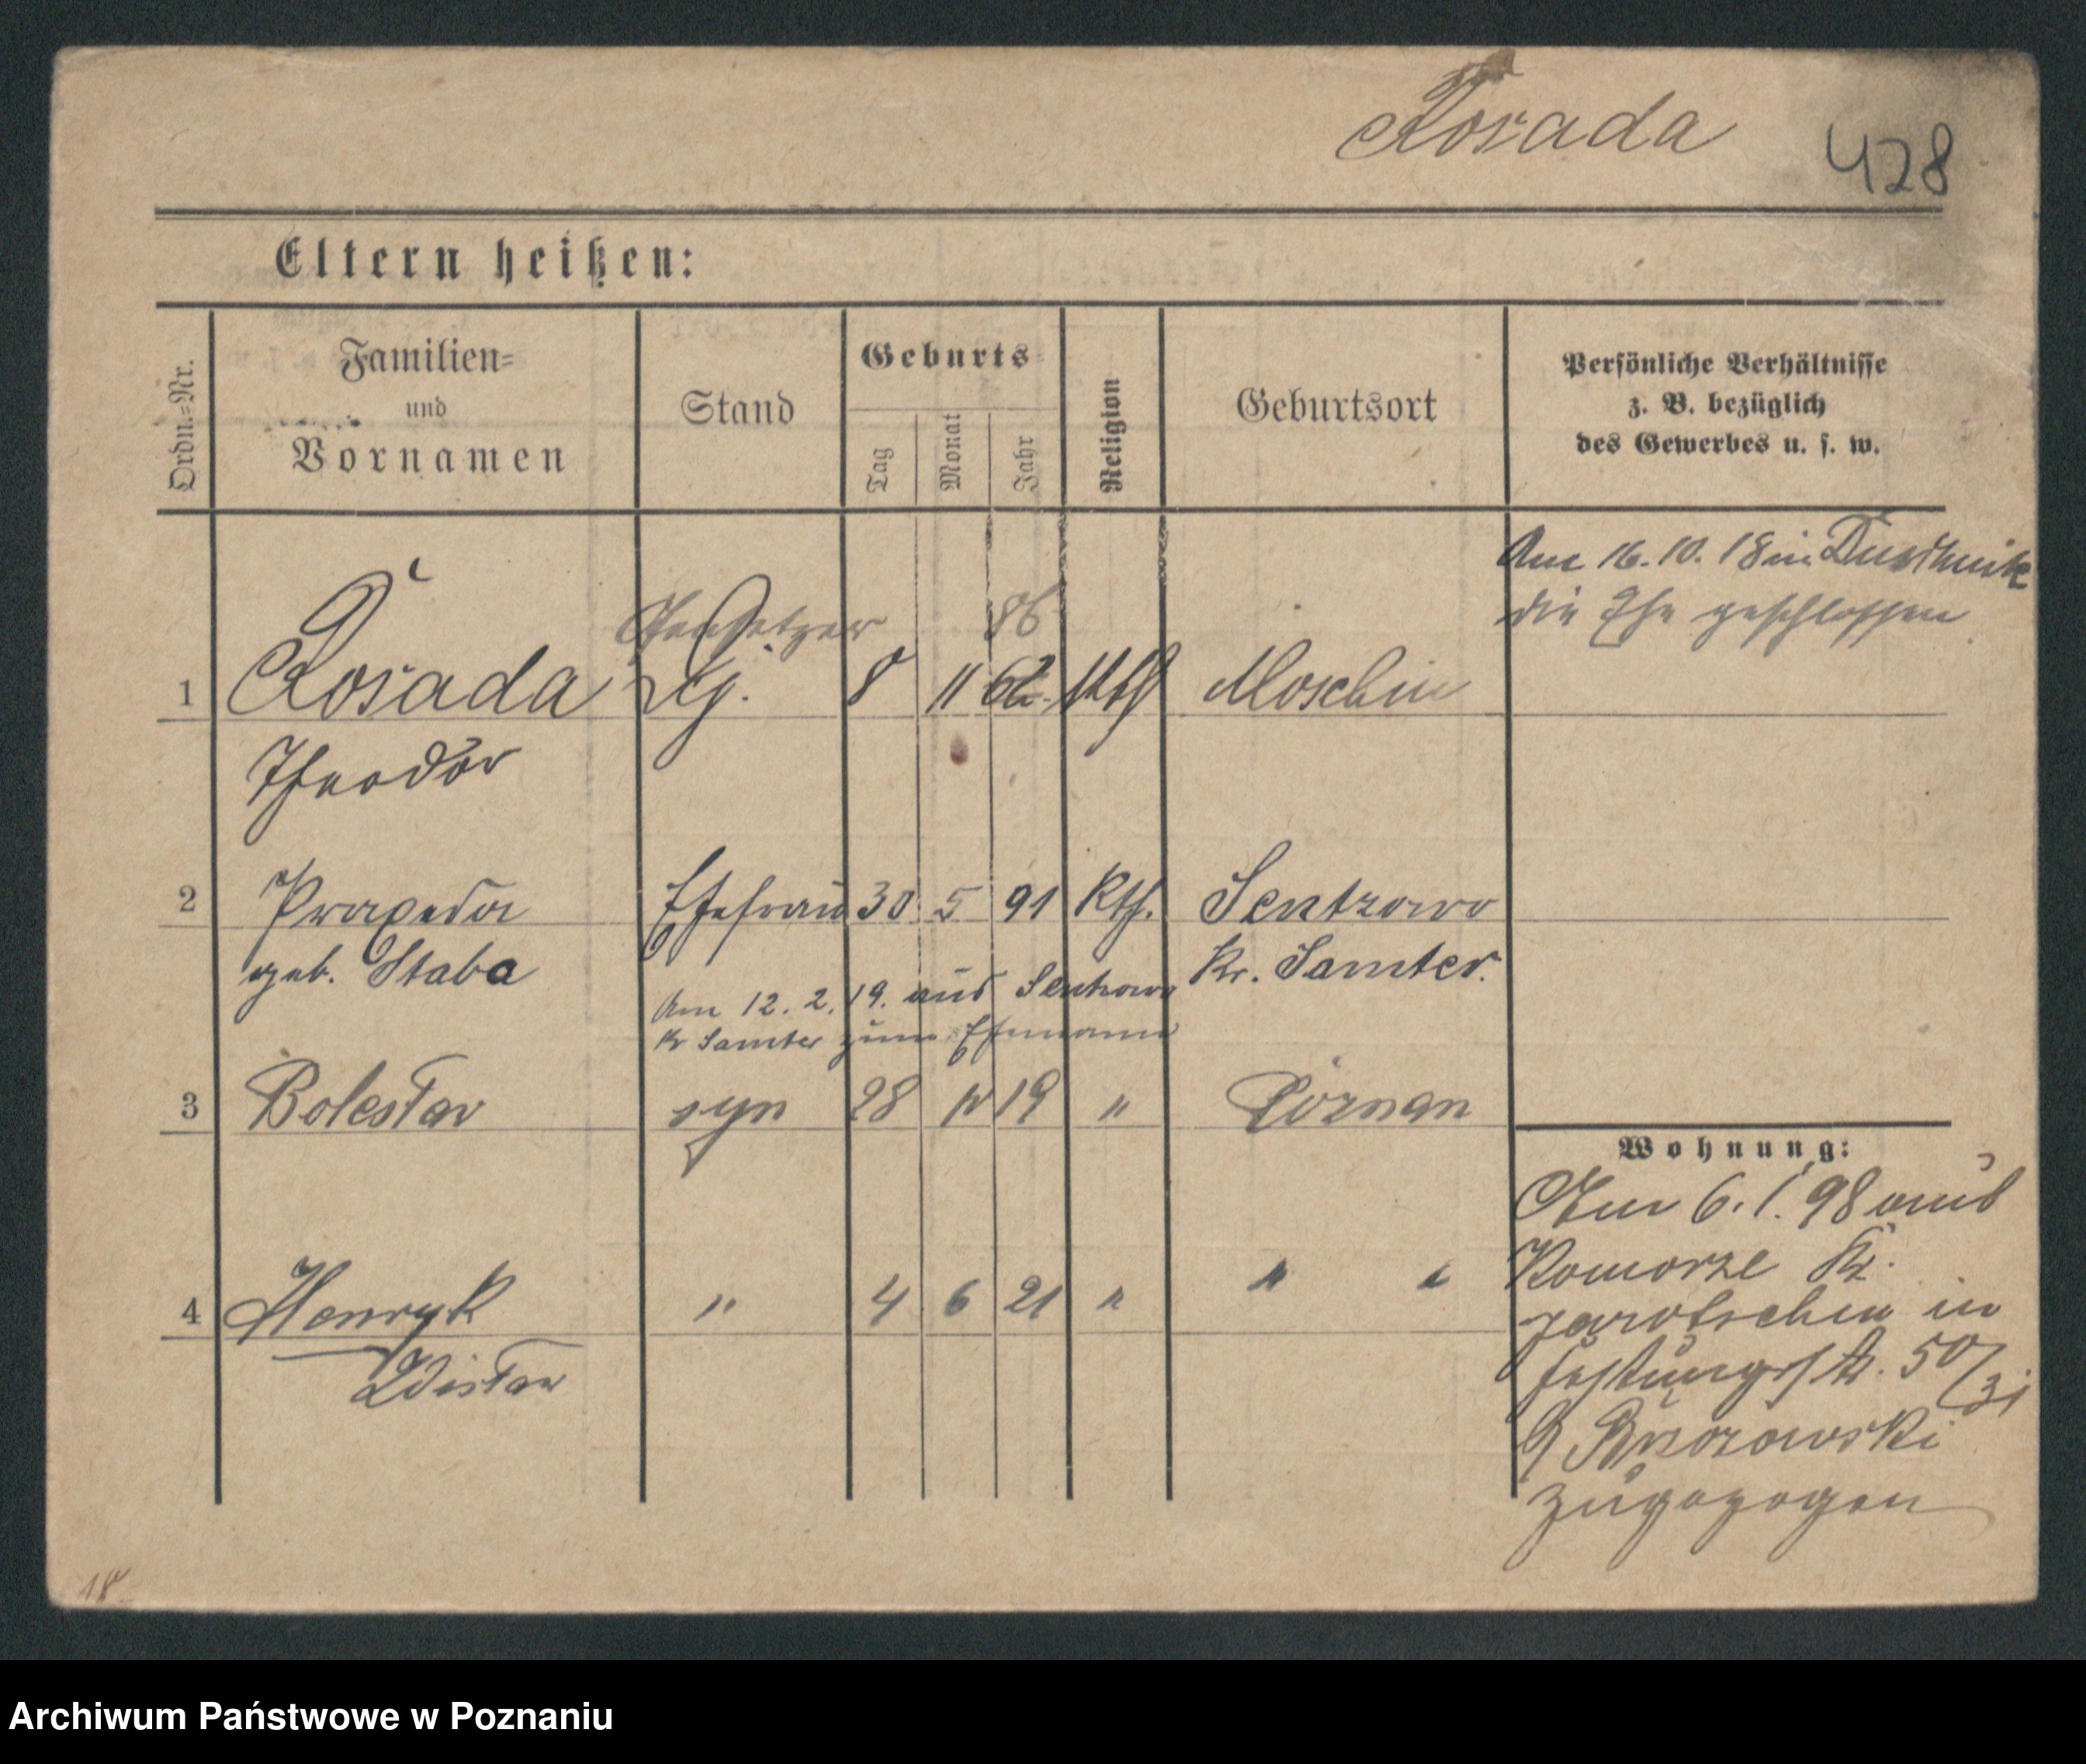 Rosada 428
Eltern heißen:
Ordn.-Nr.
Familien-
und
Vornamen
Stand
Geburts
Tag
Monat
Jahr
Religion
Geburtsort
Persönliche Verhältnisse
z. B. bezüglich
des Gewerbes u. s. w.
Am 16.10.18 in Duschnik
die Ehe geschlossen
86
1 Rosada 8 11 Kth Moschin
Theodor
2 Praxeda Ehefrau 30 5 91 Kth. Sentzowo
geb. Staba Kr. Samter.
Am 12.2.19. aus Sentzowo
Kr Samter zum Ehemann
3 Bolesław syn 28 19 " Poznan
4 Henryk " 4 6 21 " " "
Zdisław
Wohnung:
Am 6.1.98 aus
Komorze Kr.
Jarotschin in
Festungsstr. 50/31
zugezogen
18
Archiwum Państwowe w Poznaniu